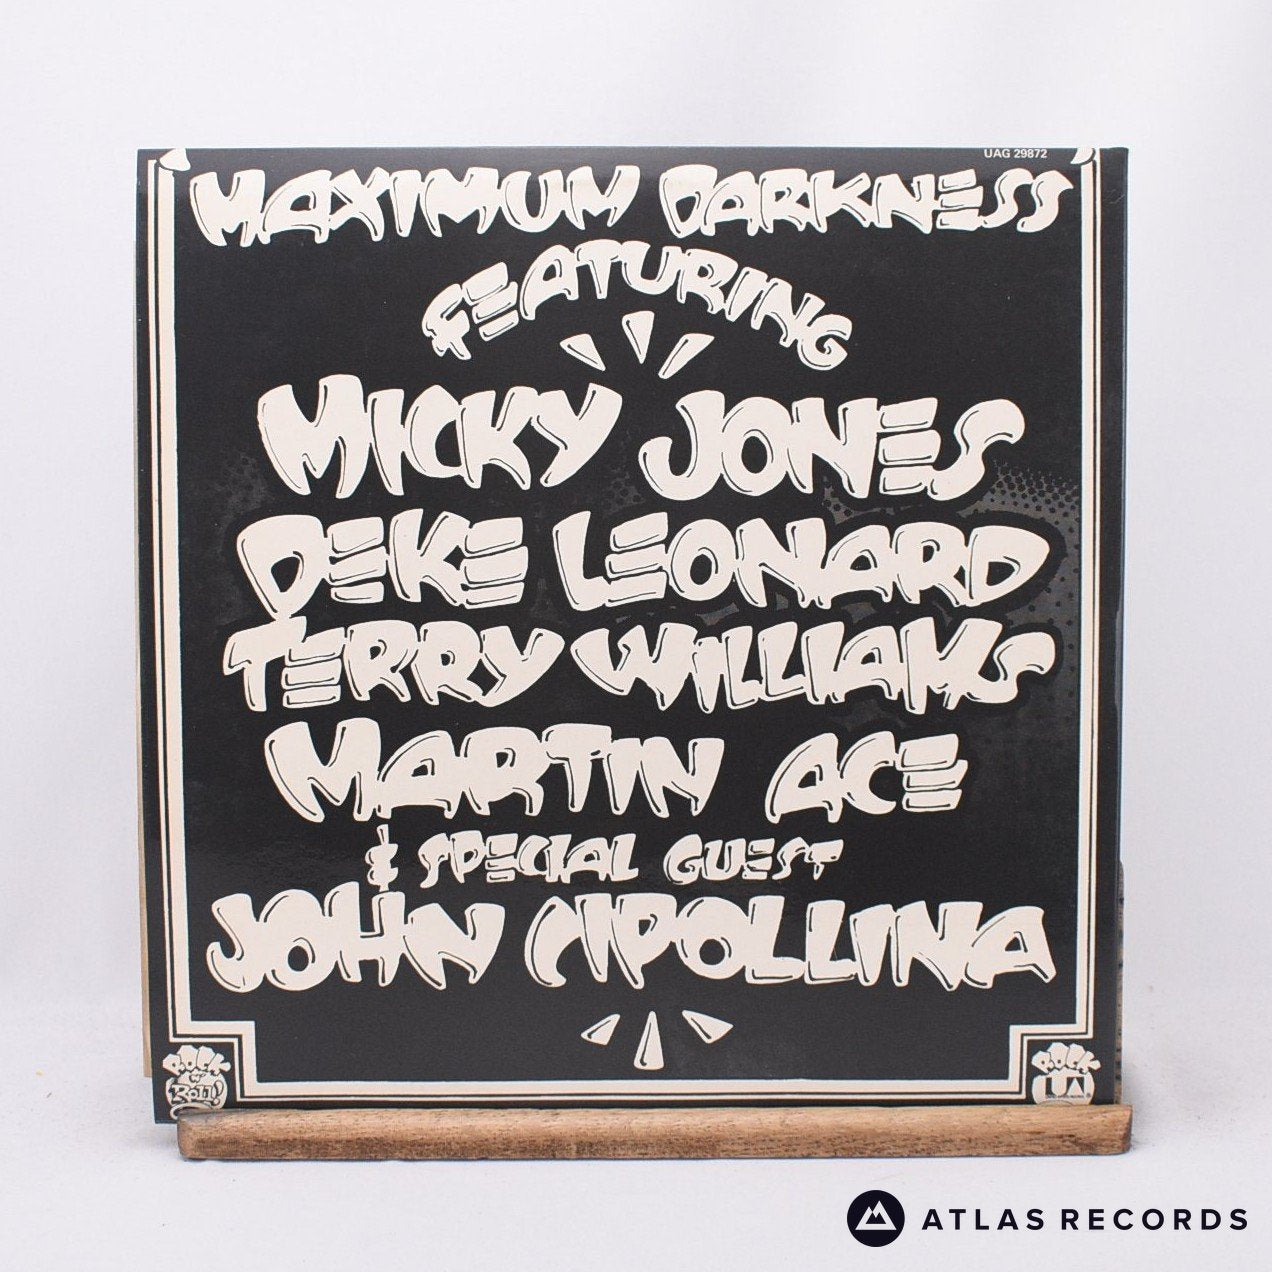 UAG 29872
MAXIMUM DARKNESS
FEATURING
MICKY JONES
DEKE LEONARD
TERRY WILLIAMS
MARTIN ACE
& SPECIAL GUEST
JOHN CIPOLLINA
ROCK
'N'
ROLL!
ROCK
UA
ATLAS RECORDS